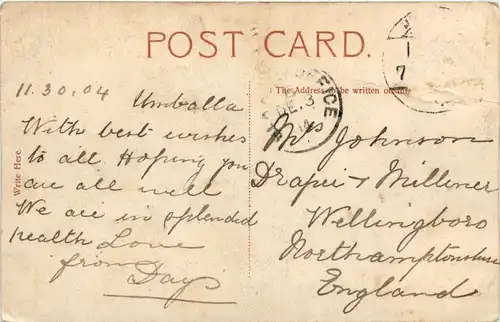 POST CARD.
11.30.04
Umballa
With best wishes
to all. Hoping you
are all well
We are in splended
health Love
from
Days
Write Here.
The Address to be written on
OFFICE
DE. 3
1
7
Mrs Johnson
Draper & Millener
Wellingboro
Northamptonshire
England